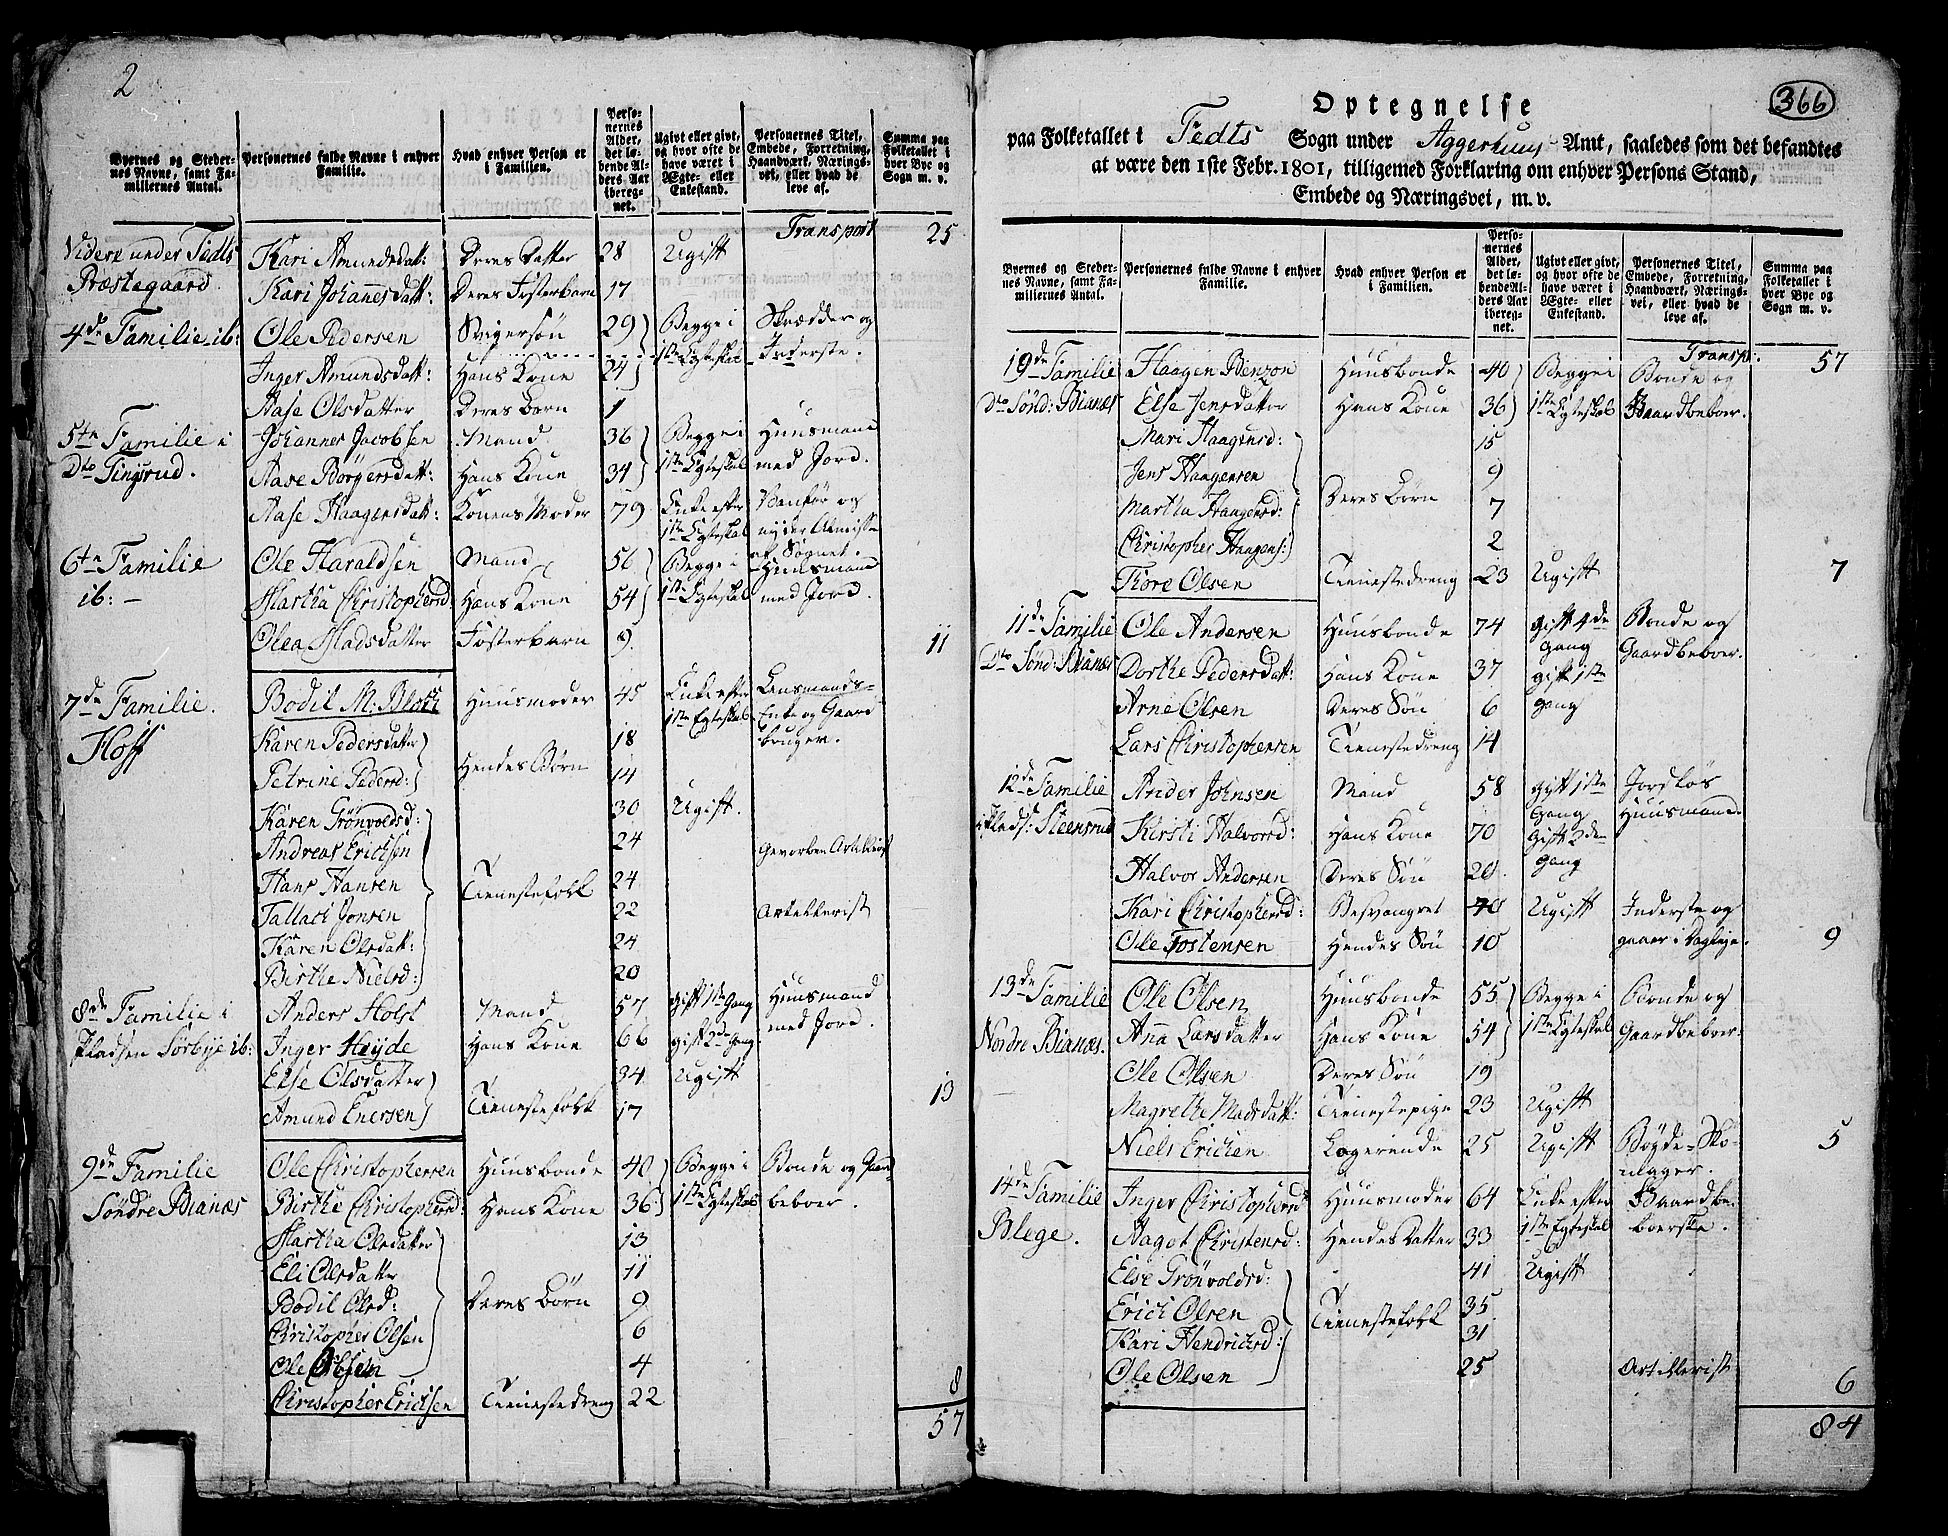 2
Byernes og Steder-
nes Navne, samt Fa-
miliernes Antal.
Personernes fulde Navne i enhver
Familie.
Hvad enhver Person er
i Familien.
Perso-
nernes
Alder,
det lø-
bende Al-
ders Aar
ibereg-
net.
Ugivt eller givt,
og hvor ofte de
have været i
Ægte- eller
Enkestand.
Personernes Titel,
Embede, Forretning,
Haandværk, Nærings-
vei, eller hvad de
leve af.
Summa paa
Folketallet i
hver Bye og
Sogn m. v.
Transport 25
Videre under Tedts Kari Amundsdatt: Deres Datter 28 Ugift
Præstegaard. Kari Johannesdatt: Deres Fosterbarn 17
4de Familie ib: Ole Pedersen Svigersøn 29 Begge i Skrædder og
1ste Egteskab Inderste.
Inger Amundsdatt: Hans Kone 24
Aase Olsdatter Deres Barn 1
5te Familie i Johannes Jacobsen Mand 36 Begge i Huusmand
Dto Tingsrud. Aase Börgersdatt: Hans Kone 34 1ste Egteskab med Jord.
Aase Haagensdatt: Konens Moder 79 Enke efter Vanför og
1ste Egteskab nyder Almisse
af Sognet.
6te Familie Ole Haraldsen Mand 56 Begge i Huusmand
ib: — Martha Christophersd: Hans Kone 54 1ste Egteskab med Jord.
Olea Madsdatter Fosterbarn 9. 11
7de Familie. Bodil M: Bloch Huusmoder 45 Enke efter Lensmands-
Hoff 1ste Egteskab Enke og Gaard
bruger.
Karen Pedersdatter 18
Hendes Børn
Petrine Pedersd: 14
Karen Grönvoldsd: 30 Ugift.
Andreas Erichsen 24 Gevorben Artillerist
Hans Hansen Tienestefolk 24
Tallach Jonsen 22 Artellerist
Karen Olsdatt: 24
Birthe Nielsd: 20
8de Familie i Anders Holst Mand 57 gift 1ste Gang Huusmand
Pladsen Sörbye ib: Inger Heyde Hans Kone 66 gift 2de Gang med Jord.
Else Olsdatter 34 Ugift
Tienestefolk 13
Amund Enersen 17
9de Familie Ole Christophersen Huusbonde 40 Begge i Bonde og Gaard
Söndre Bianæs Birthe Christophersd: Hans Kone 36 1ste Egteskab beboer.
Martha Olsdatter 13
Eli Olsdatter 11
Bodil Olsd: Deres Børn 9
Christopher Olsen 6
Ole Olsen 4
Christopher Erichsen Tienestedreng 22 8
57
366
Optegnelse
paa Folketallet i Tedts Sogn under Aggerhuus Amt, saaledes som det befandtes
at være den 1ste Febr. 1801, tilligemed Forklaring om enhver Persons Stand,
Embede og Næringsvei, m. v.
Byernes og Steder-
nes Navne, samt Fa-
miliernes Antal.
Personernes fulde Navne i enhver
Familie.
Hvad enhver Person er
i Familien.
Perso-
nernes
Alder,
det lø-
bende Al-
ders Aar
ibereg-
net.
Ugivt eller givt,
og hvor ofte de
have været i
Ægte- eller
Enkestand.
Personernes Titel,
Embede, Forretning,
Haandværk, Nærings-
vei, eller hvad de
leve af.
Summa paa
Folketallet i
hver Bye og
Sogn m. v.
Transp. 57
10de Familie Haagen Benzon Huusbonde 40 Begge i Bonde og
Dto Sönd: Bianæs Else Jensdatter Hans Kone 36 1ste Egteskab Gaardbeboer.
Mari Haagensd: 15
Jens Haagensen 9
Deres Børn
Martha Haagensd: 7
Christopher Haagens: 2
Tore Olsen Tienestedreng 23 Ugift 7
11de Familie Ole Andersen Huusbonde 74 gift 4de Bonde og
gang Gaardbeboer.
Dto Sönd: Bianæs Dorthe Pedersdatt: Hans Kone 37 gift 1ste
gang
Arne Olsen Deres Søn 6
Lars Christophersen Tienestedreng 14
12de Familie Ander Johnsen Mand 58 gift 1ste Jordløs
Gang Huusmand
i Plads: Steensrud Kirsti Halvorsd: Hans Kone 70 gift 2den
Gang
Halvor Andersen Deres Søn 20.
Kari Christophersd: Besvangret 40 Ugift Inderste og
Ole Tostensen Hendes Søn 10 gaaer i Dagleje. 9
13de Familie Ole Olsen Huusbonde 55 Begge i Bonde og
Nordre Bianæs. Anna Larsdatter Hans Kone 54 1ste Egteskab Gaardbeboer.
Ole Olsen Deres Søn 19
Magrethe Madsdatt: Tienestepige 23 Ugift
Niels Erichen Logerende 25 Ugift Bøyde-Sko-
mager. 5
14de Familie Inger Christophersd: Huusmoder 64 Enke efter Gaardbe-
Blege. Aagot Christensd: Hendes Datter 33 1ste Egteskab boerske.
Else Grönvoldsd: 41 Ugift
Erich Olsen Tienestefolk 35
Kari Hendrichsd: 31
Ole Olsen 25 Artillerist 6
84